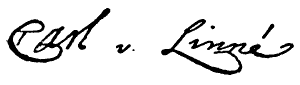 Carl v. Linné